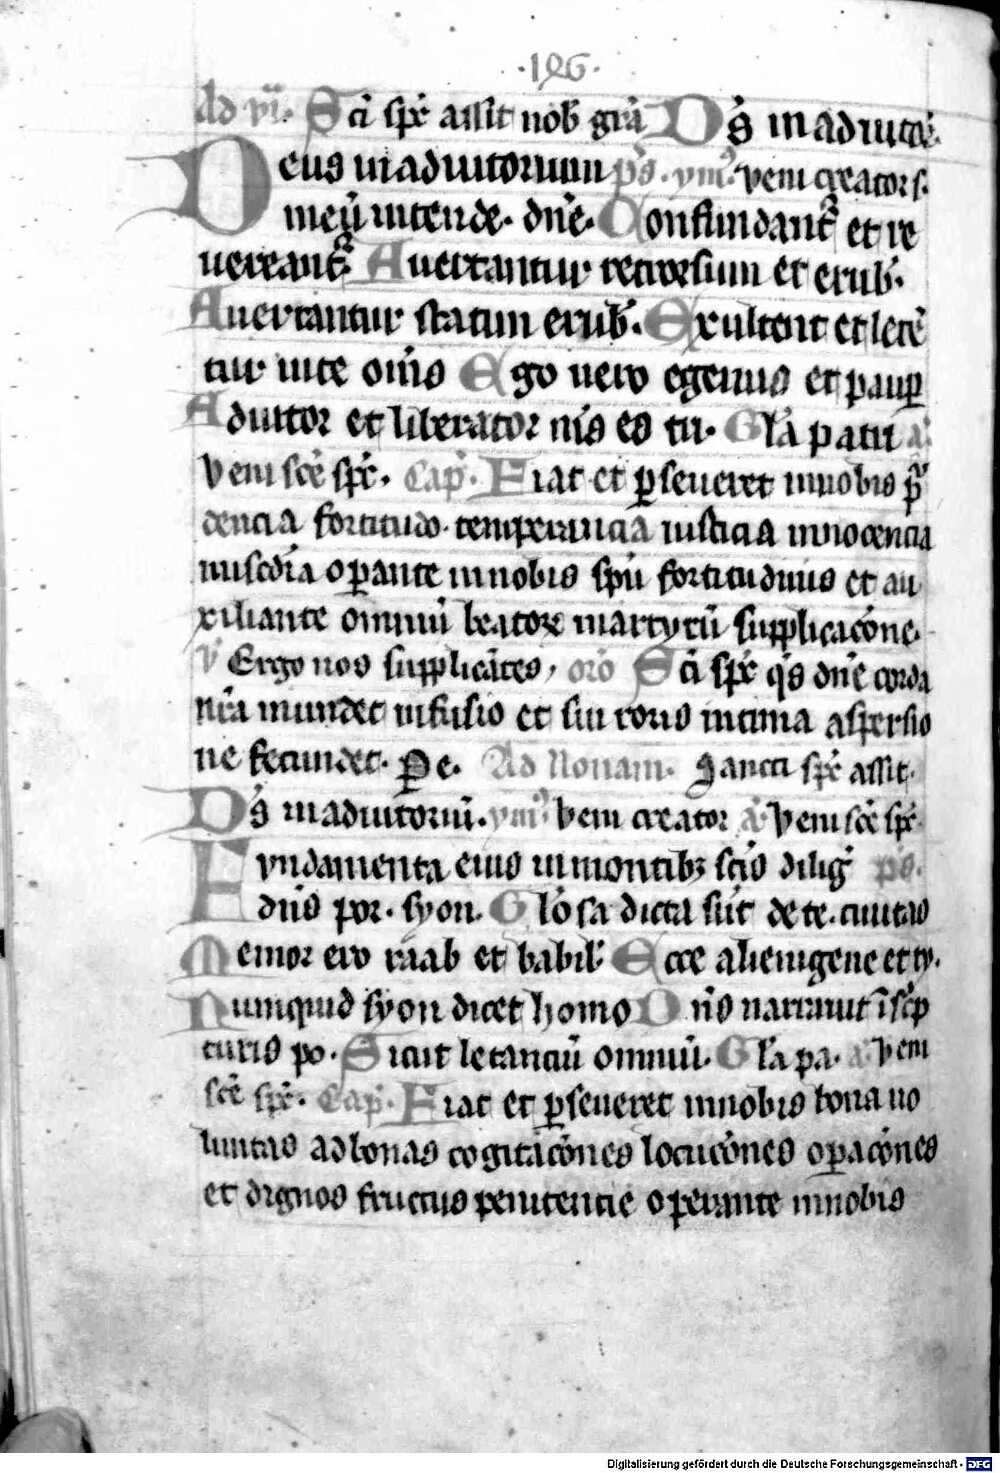 ·126·
Ad vi. Sci spc assit nob gra Ds in adiuto
Deus in adiutorium ps. ymˀ. veni creator s.
meū intende. dne. Confundantˀ et re
uereantˀ. Auertantur retrorsum et erub.
Auertantur statim erub. Exultent et lete
tur in te oms Ego vero egenus et paup
Adiutor et liberator mis es tu. Gla patri a.
Veni sce spc. Cap. Fiat et pseueret in nobis pˀ
dencia fortitudo. temperancia iusticia innocencia
misedia opante in nobis spu fortitudinis et au
xiliante omniū beatoꝝ martyrū supplicacōne.
V Ergo nos supplicātes, oro Sci spc qs dne corda
nra mundet infusio et sui roris intima aspersio
ne fecundet. Pe. Ad Nonam. Sancti spc assit.
Ds in adiutoriū. ymˀ. veni creator a Veni sce spc
Fundamenta eius in montibꝫ scis dilig ps.
dns por. syon. Gl'osa dicta sūt de te. ciuitas
Memor ero raab et babil' Ecce alienigene et ty.
Numquid syon dicet homo Dns narrauit ī scrip
turis po. Sicut letanciū omniū. Gla pa. a Veni
sce spc. Cap. Fiat et pseueret in nobis bona uo
luntas ad bonas cogitacōnes locucōnes opacōnes
et dignos fructus penitencie operante in nobis
Digitalisierung gefördert durch die Deutsche Forschungsgemeinschaft - DFG